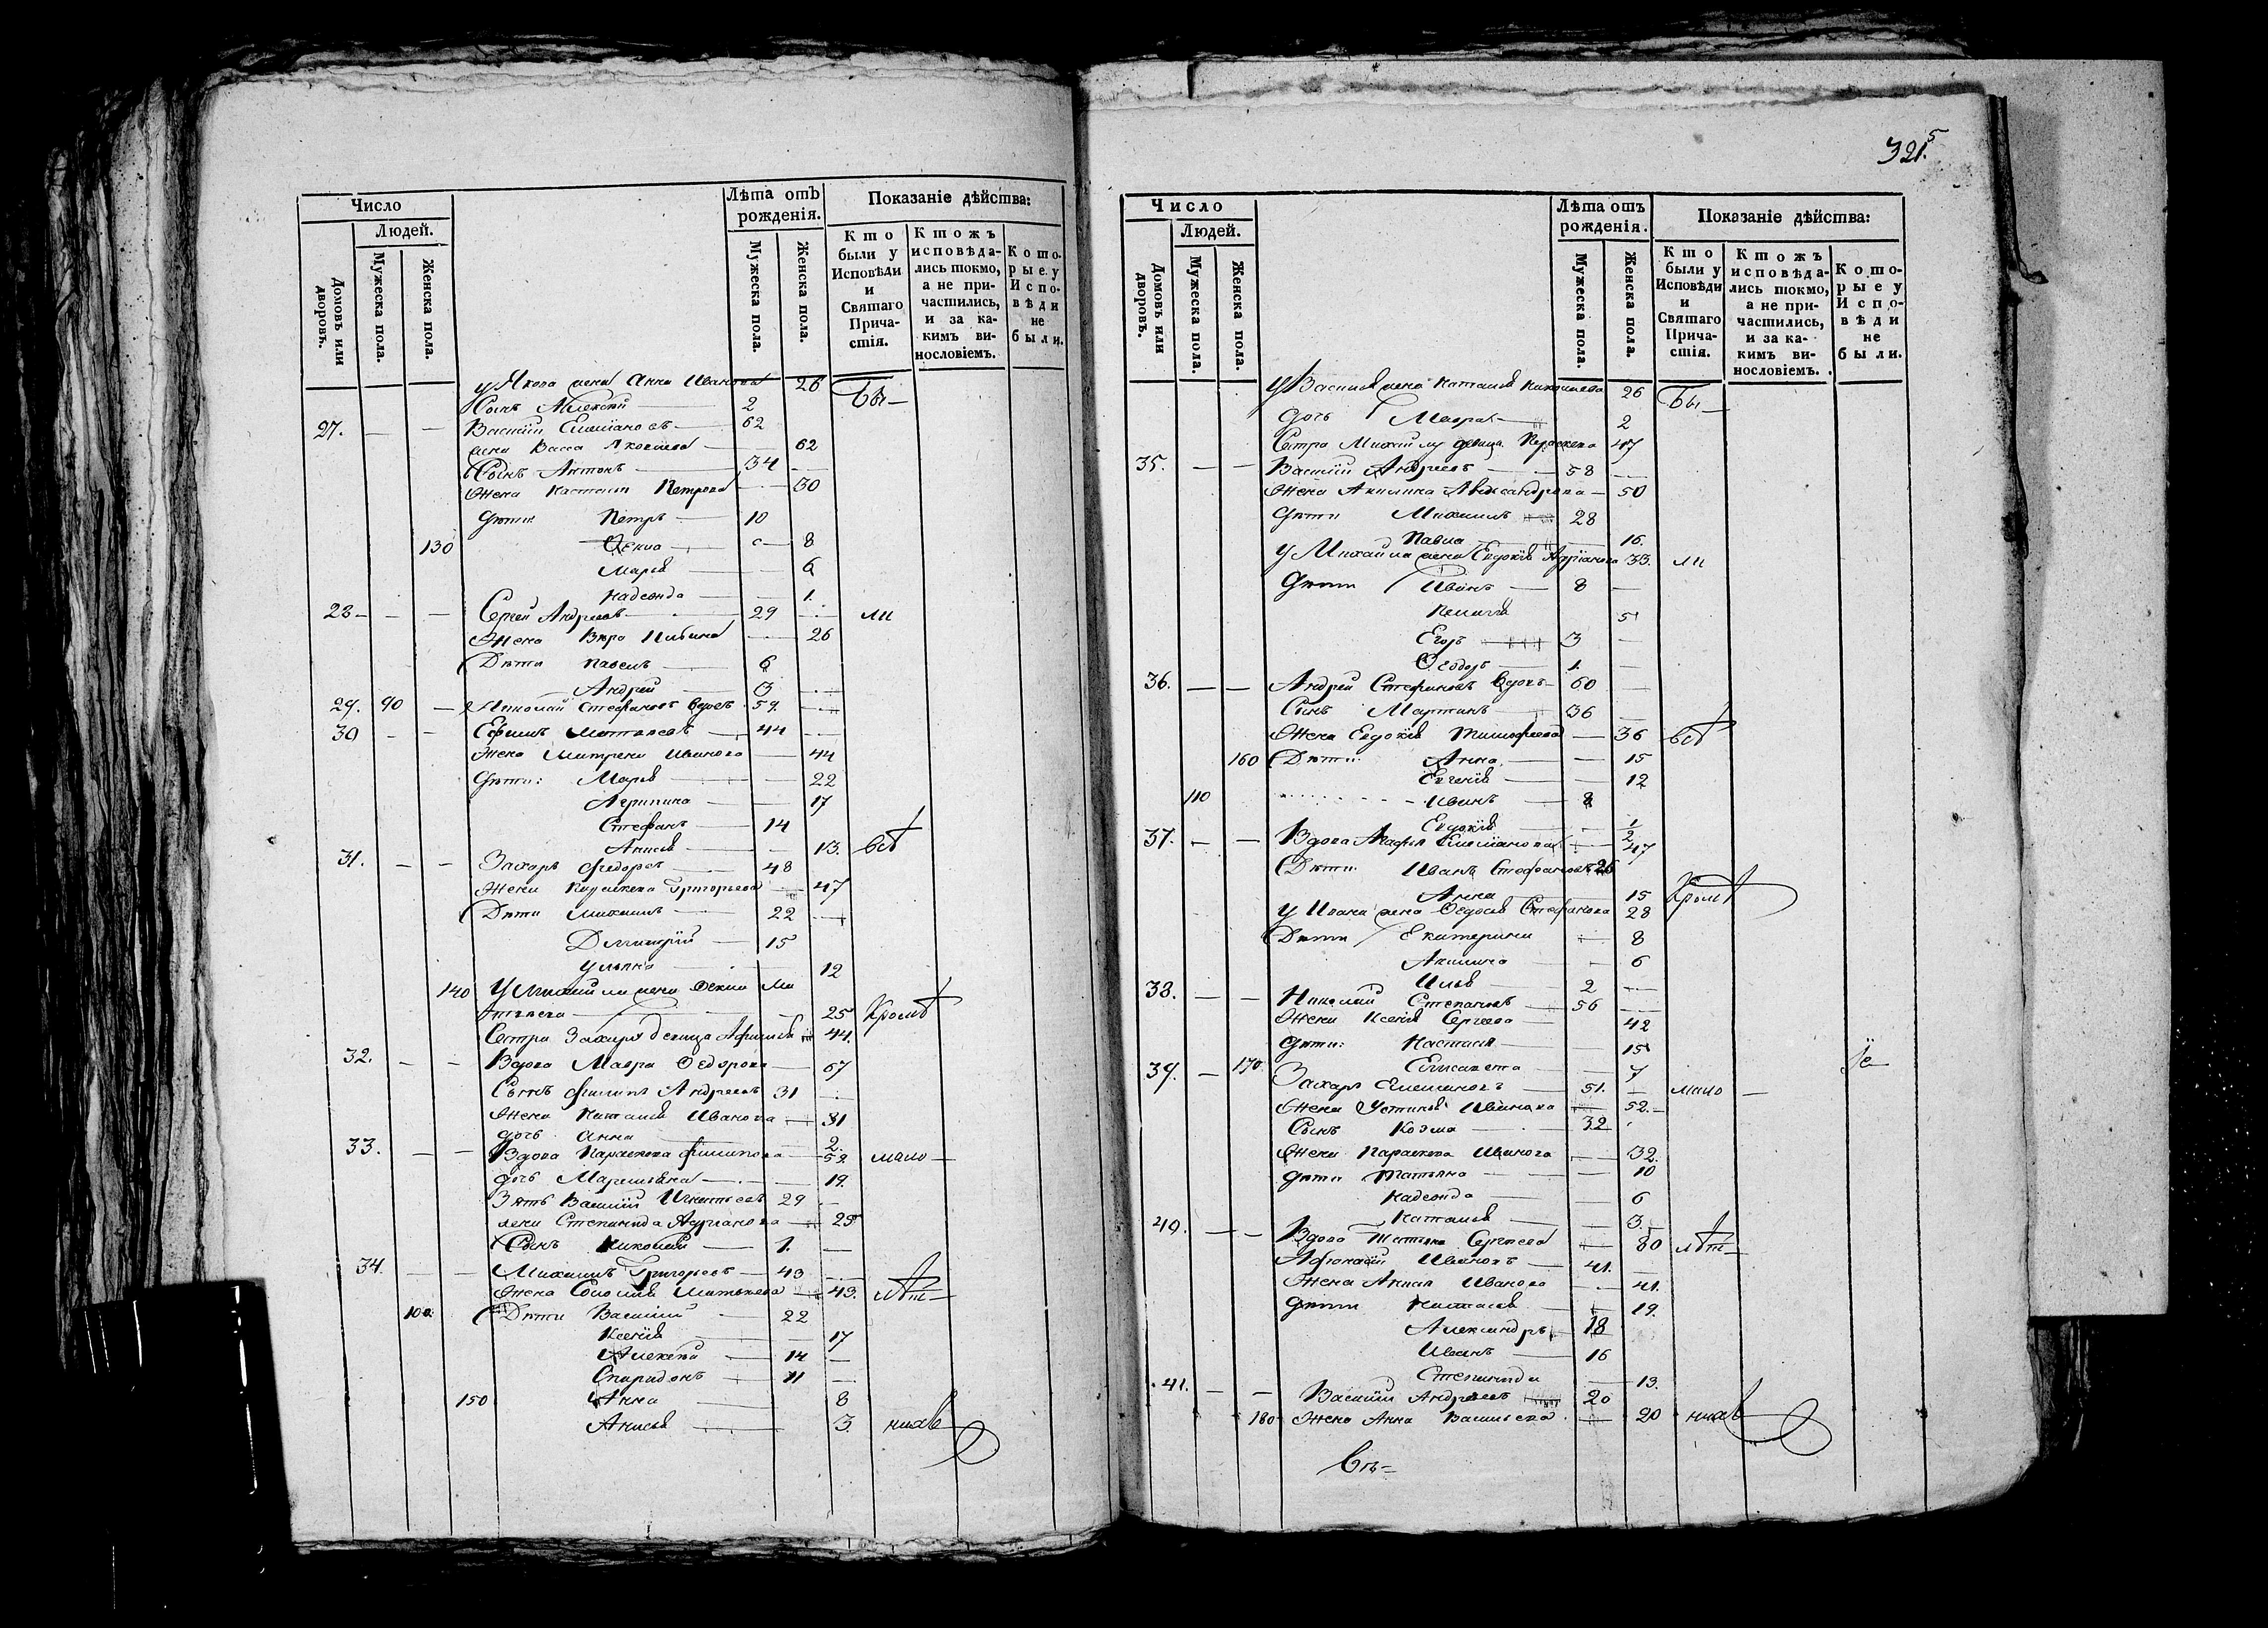 Число
Людей.
Домовъ или дворовъ.
Мужеска пола.
Женска пола.
Лѣта отъ рожденія.
Мужеска пола.
Женска пола.
Показаніе дѣйства:
Кто были у Исповѣди и Святаго Прича-стія.
Ктожъ исповѣда-лись токмо, а не при-частились, и за ка-кимъ ви-нословіемъ.
Кото-рые у Испо-вѣди не были.
у Якова жена Анна Иванова 26 Бы—
Сынъ Алексѣй 2
27. Василій Емеліановъ 62
жена Васса Яковлева 62
Сынъ Антонъ 34
Жена Настасья Петрова 30
Дѣти Петръ 10
130 Ѳекла 8
Марья 6
Надежда 1.
28 Сергей Андреевъ 29 ли
Жена Вѣра 26
Дѣти Павелъ 6
Андрей 3
29. 90 Николай Стефановъ вдовъ 59.
30 Ефимъ Матвеевъ 44
Жена Матрена Иванова 44
Дѣти: Марья 22
Агрипина 17
Стефанъ 14
Анисья 13. всѣ
31. Захаръ Федоровъ 48
Жена Параскева Григорьева 47
Дѣти Михаилъ 22
Димитрій 15
Ульяна 12
140 У Михайли жена Ѳекла Ма
твеева 25 Кромѣ
Сестра Захара девица Афимья 44.
32. Вдова Мавра Ѳедорова 67
Сынъ Филипъ Андреевъ 31
Жена Наталья Иванова 31
дочь Анна 2.
33. Вдова Параскева Филипова 52. мало
дочь Мареміяна 19.
Зять Василій Игнатьевъ 29
жена Степанида Адрианова 25
Сынъ Николай 1.
34. Михаилъ Григорьевъ 43
Жена Соломія Матвеева 43. лѣт—
100. Дѣти Василій 22
Ксенія 17
Алексѣй 14
Спиридонъ 11
150 Анна 8
Анисья 3. нихъ
321.
5
Число
Людей.
Домовъ или дворовъ.
Мужеска пола.
Женска пола.
Лѣта отъ рожденія.
Мужеска пола.
Женска пола.
Показаніе дѣйства:
Кто были у Исповѣди и Святаго Прича-стія.
Ктожъ исповѣда-лись токмо, а не при-частились, и за ка-кимъ ви-нословіемъ.
Кото-рые у Испо-вѣди не были.
у Василья жена Наталья Николаева 26 Бы—
дочь Мавра 2
Сестра Михайлу девица Параскева 47
35. Василій Андреевъ 58
Жена Акилина Александрова 50
Дѣти Михаилъ 28
Павла 16.
У Михайла жена Евдокія Адріанова 33. ли
Дѣти Иванъ 8
Пелагія 5
Егоръ 3
Ѳеодоръ 1.
36. Андрей Стефановъ вдовъ 60
Сынъ Мартинъ 36
Жена Евдокія Тимофеева 36 всѣ
160 Дѣти: Анна 15
Евгенія 12
110 Иванъ 8
Евдокія 1/2
37. Вдова Агафья Емеліанова 47
Дѣти: Иванъ Стефановъ 26
Анна 15 Кромѣ
У Ивана жена Ѳедосья Стефанова 28
Дѣти Екатерина 8
Акилина 6
Илья 2
38. Николай Степановъ 56
Жена Ксенія Сергеева 42
Дѣти: Настасья 15
170. Елисавета 7
39. Захаръ Емельяновъ 51. мало
Жена Устинья Иванова 52.
Сынъ Козма 32
Жена Параскева Иванова 32.
Дѣти Татьяна 10
Надежда 6
Наталья 3.
40. Вдова Татьяна Сергеева 80 лѣт—
Афонасій Ивановъ 41.
Жена Анна Иванова 41.
Дѣти Наталья 19.
Александръ 18
Иванъ 16
Степанида 13.
41. Василій Андреевъ 20
180 Жена Анна Васильева 20 нихъ